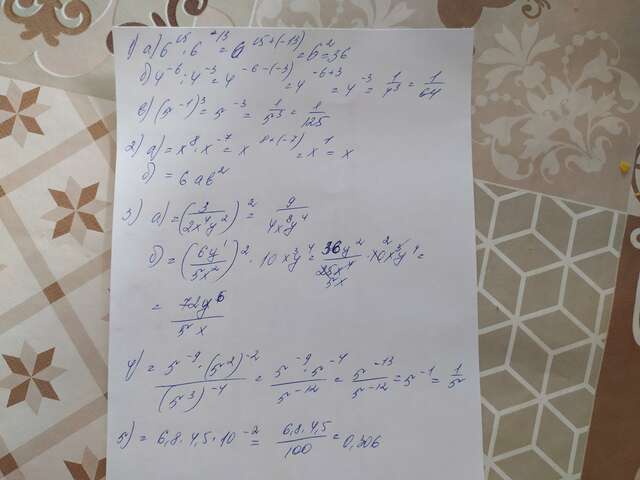 1) а) 6^15 · 6^-13 = 6^15+(-13) = 6^2 = 36
б) 4^-6 : 4^-3 = 4^-6-(-3) = 4^-6+3 = 4^-3 = 1/4^3 = 1/64
в) (5^-1)^3 = 5^-3 = 1/5^3 = 1/125
2) а) = x^8 · x^-7 = x^8+(-7) = x^1 = x
б) = 6ab^2
3) а) = (3/2x^4y^2)^2 = 9/4x^8y^4
б) = (6y^1/5x^2)^2 · 10x^3y^4 = 36y^2/25x^4 · 10x^3y^4 =
= 72y^6/5x
4) = 5^-9 · (5^2)^-2/(5^3)^-4 = 5^-9 · 5^-4/5^-12 = 5^-13/5^-12 = 5^-1 = 1/5
5) = 6,8 · 4,5 · 10^-2 = 6,8 · 4,5/100 = 0,306